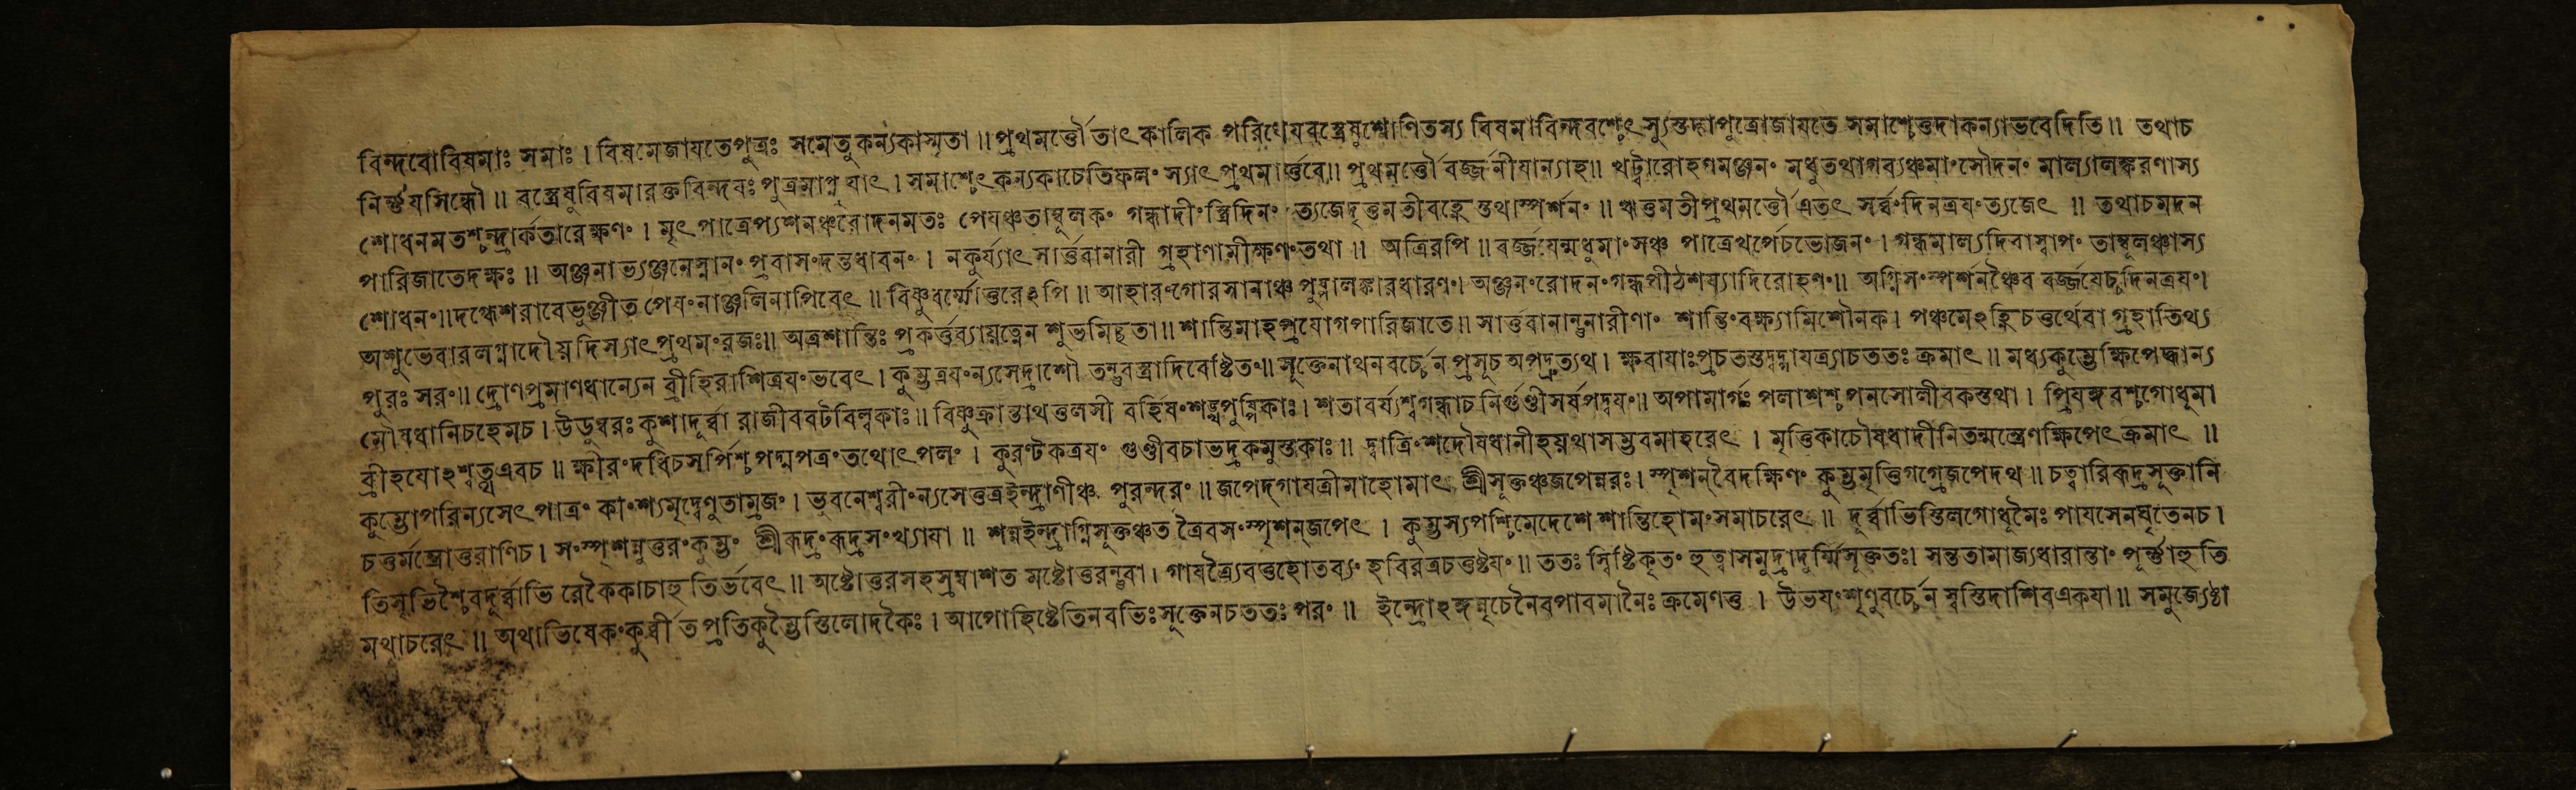 বিন্দবোবিষমাঃ সমাঃ । বিষমেজাযতেপুত্রঃ সমেতুকন্যকাস্মৃতা ॥ প্রথমর্ত্তৌতাৎকালিক পরিধেযবস্ত্রেষুশোণিতস্য বিষমাবিন্দবশ্চেৎস্যুস্তদাপুত্রোজাযতে সমাশ্চেত্তদাকন্যাভবেদিতি ॥ তথাচ
নির্ণ্ণযসিন্ধৌ ॥ বস্ত্রেষুবিষমারক্তবিন্দবঃ পুত্রমাপ্নুযাৎ । সমাশ্চেৎ কন্যকাচেতিফলং স্যাৎ প্রথমার্ত্তবে ॥ প্রথমর্ত্তৌবর্জ্জনীযান্যাহ ॥ খট্বারোহণমঞ্জনং মধুতথাগব্যঞ্চমাংসৌদনং মাল্যালঙ্করণাস্য
শোধনমতশ্চন্দ্রার্কতারেক্ষণং । মৃৎপাত্রেপ্যশনঞ্চরোদনমতঃ পেযঞ্চতাম্বূলকং গন্ধাদীংস্ত্রিদিনং ত্যজেদৃতুমতীবহ্নেস্তথাস্পর্শনং ॥ ঋতুমতীপ্রথমর্ত্তৌ এতৎ সর্ব্বংদিনত্রযংত্যজেৎ ॥ তথাচমদন
পারিজাতেদক্ষঃ ॥ অঞ্জনাভ্যঞ্জনেস্নানং প্রবাসংদন্তধাবনং । নকুর্য্যাৎ সার্ত্তবানারী গ্রহাণামীক্ষণংতথা ॥ অত্রিরপি ॥ বর্জ্জযেন্মধুমাংসঞ্চ পাত্রেখর্পেচভোজনং । গন্ধমাল্যদিবাস্বাপং তাম্বূলঞ্চাস্য
শোধনং ॥ দগ্ধেশরাবেভুঞ্জীত পেযংনাঞ্জলিনাপিবেৎ ॥ বিষ্ণুধর্ম্মোত্তরেঽপি ॥ আহারংগোরসানাঞ্চ পুষ্পালঙ্কারধারণং । অঞ্জনংরোদনংগন্ধপীঠশয্যাদিরোহণং ॥ অগ্নিসংস্পর্শনঞ্চৈব বর্জ্জযেচ্চদিনত্রযং ।
অশুভেবারলগ্নাদৌযদিস্যাৎপ্রথমংরজঃ ॥ অত্রশান্তিঃ প্রকর্ত্তব্যাযত্নেন শুভমিছতা ॥ শান্তিমাহপ্রযোগপারিজাতে ॥ সার্ত্তবানান্তুনারীণাং শান্তিংবক্ষ্যামিশৌনক । পঞ্চমেঽহ্নিচতুর্থেবা গ্রহাতিথ্য
পুরঃ সরং ॥ দ্রোণপ্রমাণধান্যেন ব্রীহিরাশিত্রযংভবেৎ । কুম্ভত্রযংন্যসেদ্রাশৌ তন্তুবস্ত্রাদিবেষ্টিতং ॥ সূক্তেনাথনবর্চ্চেন প্রসূচ অপদ্রত্যথ । ক্ষবাযাঃপ্রচতস্তদ্বদ্গাযত্র্যাচততঃ ক্রমাৎ ॥ মধ্যকুম্ভেক্ষিপেদ্ধান্য
মৌষধানিচহেমচ । উডুম্বরঃ কুশাদূর্ব্বা রাজীববটবিল্বকাঃ ॥ বিষ্ণুক্রান্তাথতুলসী বর্হিষংশঙ্খপুষ্পিকাঃ । শতাবর্য্যশ্বগন্ধাচ নির্গুণ্ডীসর্ষপদ্বযং ॥ অপামার্গঃ পলাশশ্চপনসোলীবকস্তথা । প্রিযঙ্গবশ্চগোধূমা
ব্রীহযোঽশ্বত্থএবচ ॥ ক্ষীরংদধিচসর্পিশ্চ পদ্মপত্রংতথোৎপলং । কুরণ্টকত্রযং গুণ্ডীবচাভদ্রকমুস্তকাঃ ॥ দ্বাত্রিংশদৌষধানীহযথাসম্ভবমাহরেৎ । মৃত্তিকাচৌষধাদীনিতন্মন্ত্রেণক্ষিপেৎক্রমাৎ ॥
কুম্ভোপরিন্যসেৎপাত্রং কাংশ্যমৃদ্বেণুতাম্রজং । ভুবনেশ্বরীংন্যসেত্তত্রইন্দ্রাণীঞ্চ পুরন্দরং ॥ জপেদ্গাযত্রীমাহোমাৎ শ্রীসূক্তঞ্চজপেন্নরঃ । স্পৃশন্বৈদক্ষিণং কুম্ভমৃত্বিগগ্রেজপেদথ ॥ চত্বারিরূদ্রসূক্তানি
চতুর্মন্ত্রোত্তরাণিচ । সংস্পৃশন্নুত্তরংকুম্ভং শ্রীরূদ্রংরূদ্রসংখ্যাযা ॥ শন্নইন্দ্রাগ্নিসূক্তঞ্চত ত্রৈবসংস্পৃশন্জপেৎ । কুম্ভস্যপশ্চিমেদেশে শান্তিহোমংসমাচরেৎ ॥ দূর্ব্বাভিস্তিলগোধূমৈঃ পাযসেনঘৃতেনচ ।
তিসৃভিশ্চৈবদূর্ব্বাভি রেকৈকাচাহুতির্ভবেৎ ॥ অষ্টোত্তরসহস্রম্বাশত মষ্টোত্তরন্তুবা । গাযত্র্যৈবতুহোতব্যং হবিরত্রচতুষ্টযং ॥ ততঃ স্বিষ্টিকৃতং হুত্বাসমুদ্রাদূর্ম্মিসূক্ততঃ । সন্ততামাজ্যধারান্তাং পূর্ণ্ণাহুতি
মথাচরেৎ ॥ অথাভিষেকংকুর্ব্বীত প্রতিকুম্ভৈস্তিলোদকৈঃ । আপোহিষ্টেতিনবভিঃসূক্তেনচততঃ পরং ॥ ইন্দ্রোঽঙ্গনৃচেনৈবপাবমানৈঃ ক্রমেণতু । উভযংশৃণুবর্চ্চেন স্বস্তিদাশিবএকযা ॥ সমুজ্যেষ্ঠা